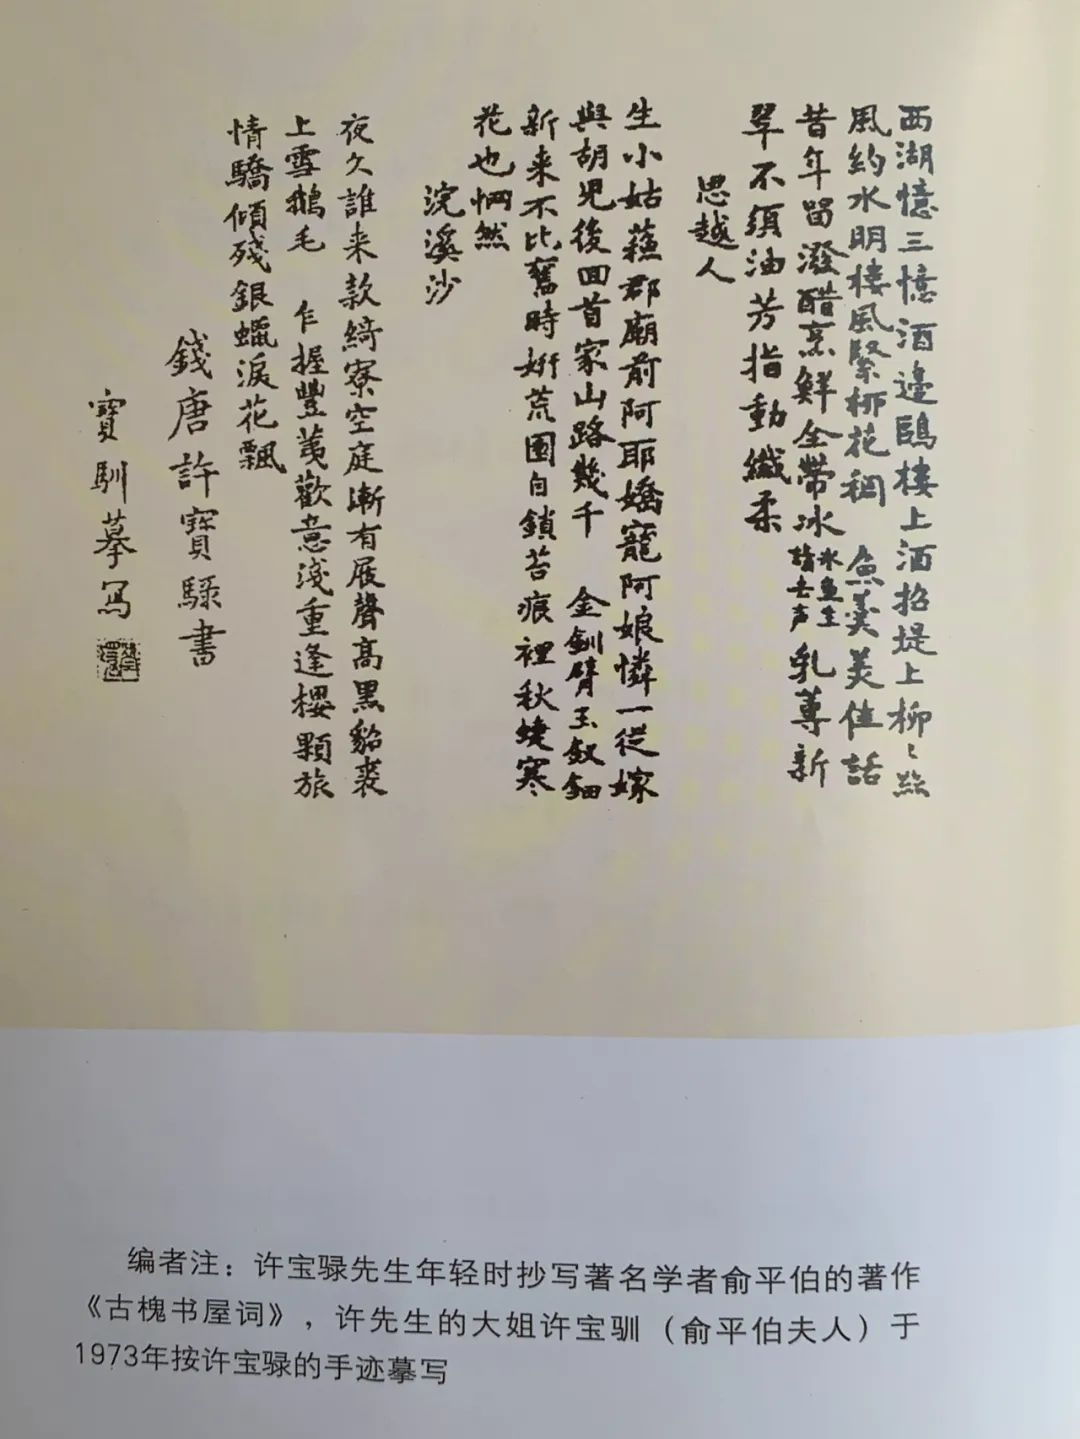 西湖憶三憶酒邊鷗樓上酒招堤上柳〻絲
風約水明樓風緊柳花稠　魚羹美佳話
昔年留潑醋烹鮮全帶冰冰魚生請去声乳蓴新
翠不須油芳指動纖柔
思越人
生小姑蘇郡廟前阿耶嬌寵阿娘憐一從嫁
與胡兒後回首家山路幾千　金釧臂玉釵鈿
新来不比舊時妍荒園自鎖苔痕裡秋蜨寒
花也惘然
浣溪沙
夜久誰来款綺寮空庭漸有屐聲高黑貂裘
上雪鵝毛　乍握豐荑歡意淺重逢櫻顆旅
情驕傾殘銀蠟淚花飄
錢唐許寶騄書
寶馴摹寫
编者注：许宝骙先生年轻时抄写著名学者俞平伯的著作
《古槐书屋词》，许先生的大姐许宝驯（俞平伯夫人）于
1973年按许宝骙的手迹摹写